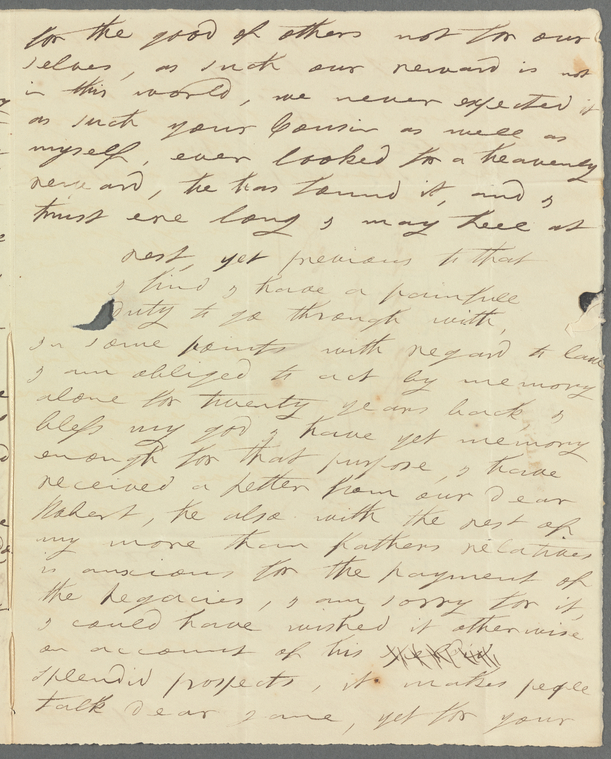 for the good of others not for our
selves, as such our reward is not
in this world, we never expected it
as such your Cousin as well as
myself, ever looked for a heavenly
reward, he has found it, and I
trust ere long I may be at
rest, yet previous to that
I find I have a painfull
duty to go through with,
in some points with regard to law
I am obliged to act by memory
alone for twenty years back, I
bless my god I have yet memory
enough for that purpose, I have
received a letter from our dear
Robert, he also with the rest of
my more than fathers relatives
is anxious for the payment of
the Legacies, I am sorry for it,
I could have wished it otherwise
on account of his
splendid prospects, it makes people
talk dear Jane, yet for your